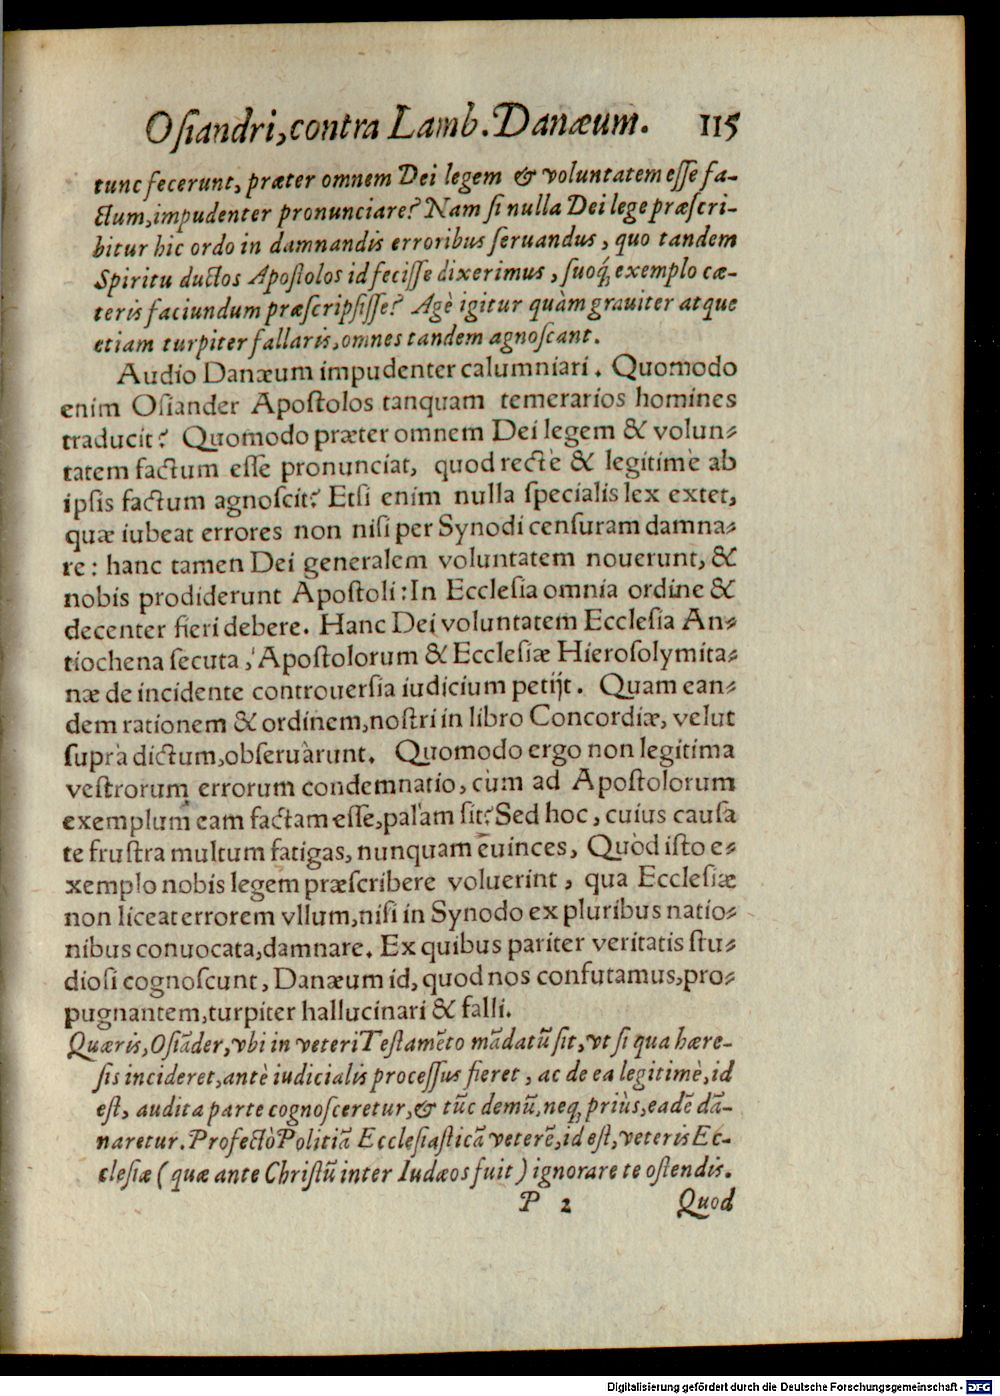 Osiandri, contra Lamb. Danæum. 115
tunc fecerunt, præter omnem Dei legem & voluntatem esse fa-
ctum, impudenter pronunciare? Nam si nulla Dei lege præscri-
bitur hic ordo in damnandis erroribus seruandus, quo tandem
Spiritu ductos Apostolos id fecisse dixerimus, suoq́; exemplo cæ-
teris faciundum præscripsisse? Agè igitur quàm grauiter atque
etiam turpiter fallaris, omnes tandem agnoscant.
Audio Danæum impudenter calumniari. Quomodo
enim Osiander Apostolos tanquam temerarios homines
traducit? Quomodo præter omnem Dei legem & volun-
tatem factum esse pronunciat, quod rectè & legitimè ab
ipsis factum agnoscit? Etsi enim nulla specialis lex extet,
quæ iubeat errores non nisi per Synodi censuram damna-
re: hanc tamen Dei generalem voluntatem nouerunt, &
nobis prodiderunt Apostoli: In Ecclesia omnia ordine &
decenter fieri debere. Hanc Dei voluntatem Ecclesia An-
tiochena secuta, Apostolorum & Ecclesiæ Hierosolymita-
næ de incidente controuersia iudicium petijt. Quam ean-
dem rationem & ordinem, nostri in libro Concordiæ, velut
suprà dictum, obseruârunt. Quomodo ergo non legitima
vestrorum errorum condemnatio, cùm ad Apostolorum
exemplum eam factam esse, palàm sit? Sed hoc, cuius causa
te frustra multum fatigas, nunquam euinces, Quòd isto e-
xemplo nobis legem præscribere voluerint, qua Ecclesiæ
non liceat errorem vllum, nisi in Synodo ex pluribus natio-
nibus conuocata, damnare. Ex quibus pariter veritatis stu-
diosi cognoscunt, Danæum id, quod nos confutamus, pro-
pugnantem, turpiter hallucinari & falli.
Quæris, Osiãder, vbi in veteri Testamẽto mãdatũ sit, vt si qua hære-
sis incideret, antè iudicialis processus fieret, ac de ea legitimè, id
est, audita parte cognosceretur, & tũc demũ, neq; priùs, eadẽ dã-
naretur. Profectò Politiã Ecclesiasticã veterẽ, id est, veteris Ec-
clesiæ (quæ ante Christũ inter Iudæos fuit) ignorare te ostendis.
P 2 Quod
Digitalisierung gefördert durch die Deutsche Forschungsgemeinschaft - DFG